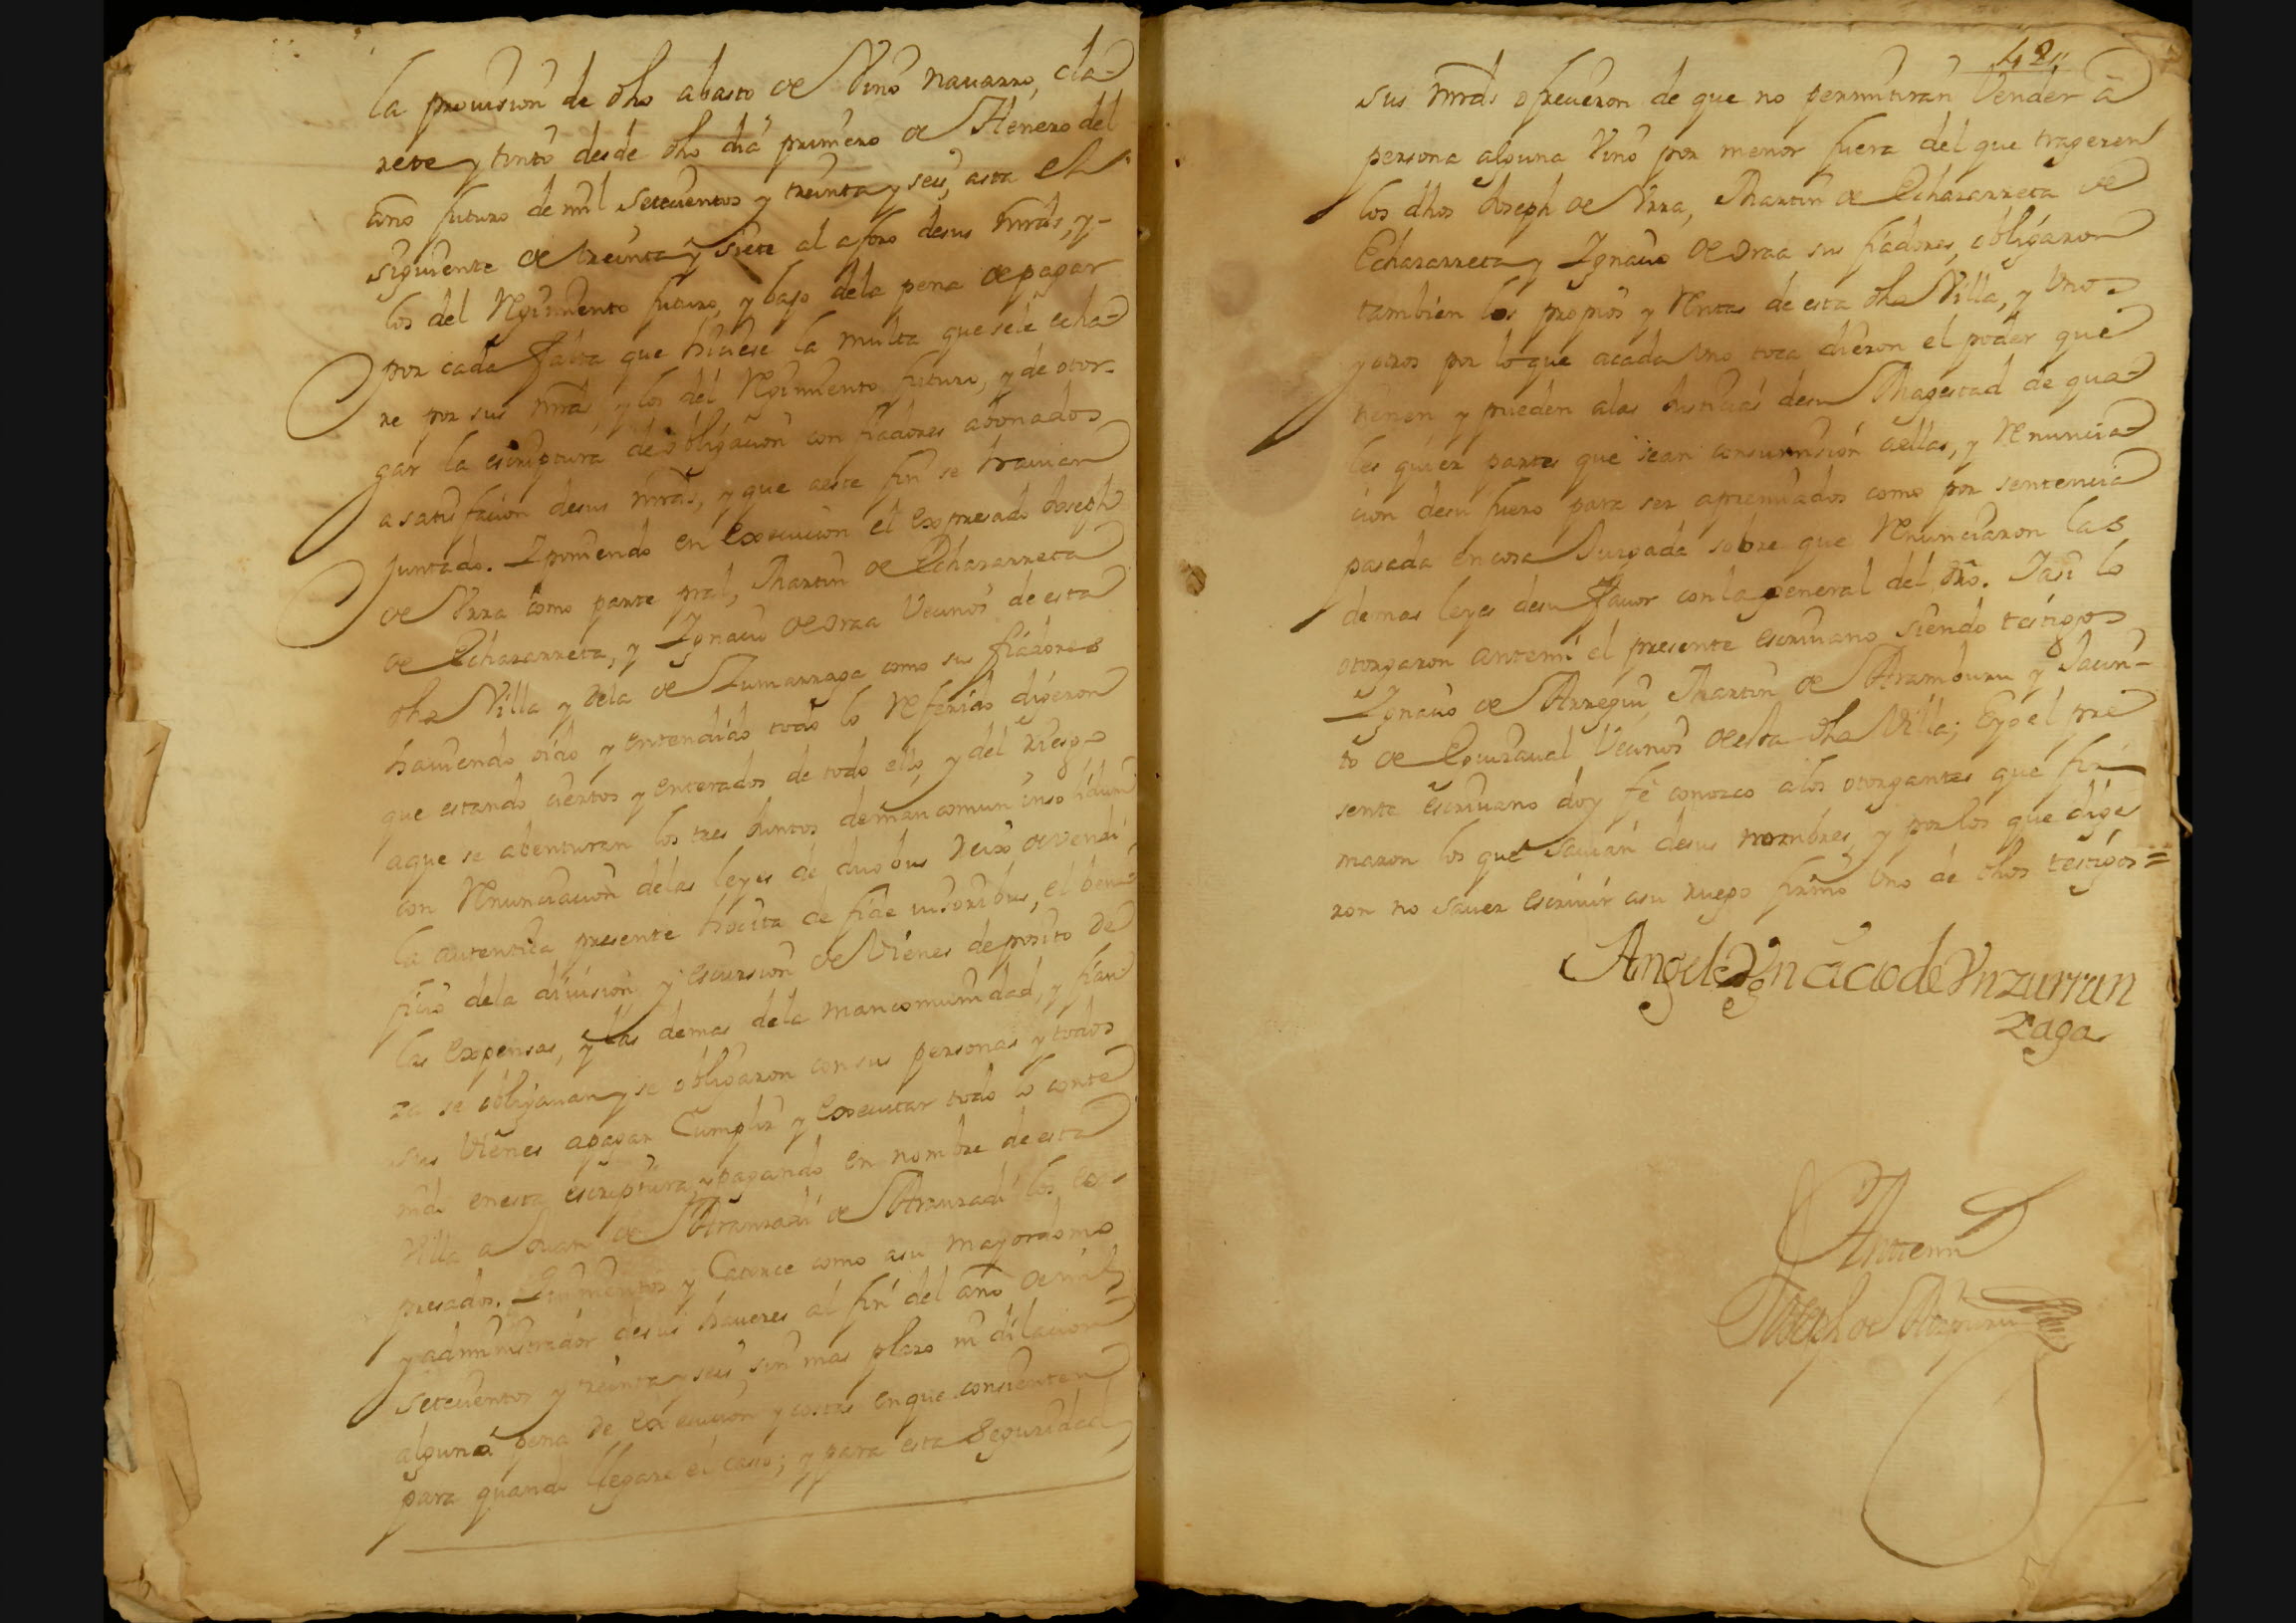 la prouision de dho abasto de Vino nauarro, cla-
rete y tinto desde dho dia primero de Henero del
año futuro de mil setecientos y treinta y seis, asta el
siguiente de treinta y siete al aforo de sus mrds, y-
los del Regimiento futuro, y bajo de la pena de pagar
por cada falta que hiciese la multa que se le echa-
re por sus mrds, y los del Regimiento futuro, y de otor-
gar la escriptura de obligacion con fiadores abonados
a satisfacion de sus mrds, y que a este fin se hauian
juntado. I poniendo en execucion el expresado Joseph
de Vrra como parte pral, Martin de Echazarreta
de Echazarreta, y Ignacio de Oraa Vecinos de esta
dha Villa y de la de Zumarraga como sus fiadores
hauiendo oido y entendido todo lo Referido digeron
que estando ciertos y enterados de todo ello, y del riesgo
a que se abenturan los tres Juntos de mancomun insolidum
con Renunciacion de las leyes de duobus Reix devendi,
la autentica presente hocita de fide iusoribus, el bene-
ficio de la diuision y escursion de Vienes deposito de
las expensas, y las demas de la mancomunidad, y fian-
za se obligauan y se obligaron con sus personas y todos
sus Vienes a pagar Cumplir y executar todo lo conte-
nido en esta escriptura, y pagando en nombre de esta
Villa a Juan de Aranzadi de Aranzadi los ex-
presados. Quinientos y Catorce como a su mayordomo
y administrador de sus haueres al fin del año de mil
setecientos y treinta y seis, sin mas plazo ni dilacion
alguna pena de execucion y costas en que consienten
para quando llegare el caso; y para esta Seguridad
42,,
sus mrds ofrecieron de que no permitiran Vender à
persona alguna Vino por menor fuera del que trageren
los dhos Joseph de Vrra, Martin de Echazarreta de
Echazarreta y Ignacio de Oraa sus fiadores, obligaron
tambien los propios y Rentas de esta dha Villa, y Unos
y otros por lo que a cada Vno toca dieron el poder que
tienen y pueden a las Justicias de su Magestad de qua-
les quier partes que sean con sumision a ellas, y Renuncia-
cion de su fuero para ser apremiados como por sentencia
pasada en cosa Juzgada sobre que Renunciaron las
demas leyes de su fauor con la general del dro. I asi lo
otorgaron antemi el presente escriuano siendo testigos
Ignacio de Arregui, Martin de Aramburu y Jacin-
to de Eguzquial Vecinos de esta dha Villa; E yo el pre
sente escriuano doy fe conozco a los otorgantes que fir-
maron los que sauian de sus nombres, y por los que dige
ron no sauer escriuir a su ruego firmò Uno de dhos testigos=
Angel Ygnacio de Vnzurrun
zaga
Antemi
Joseph de Aizpuru